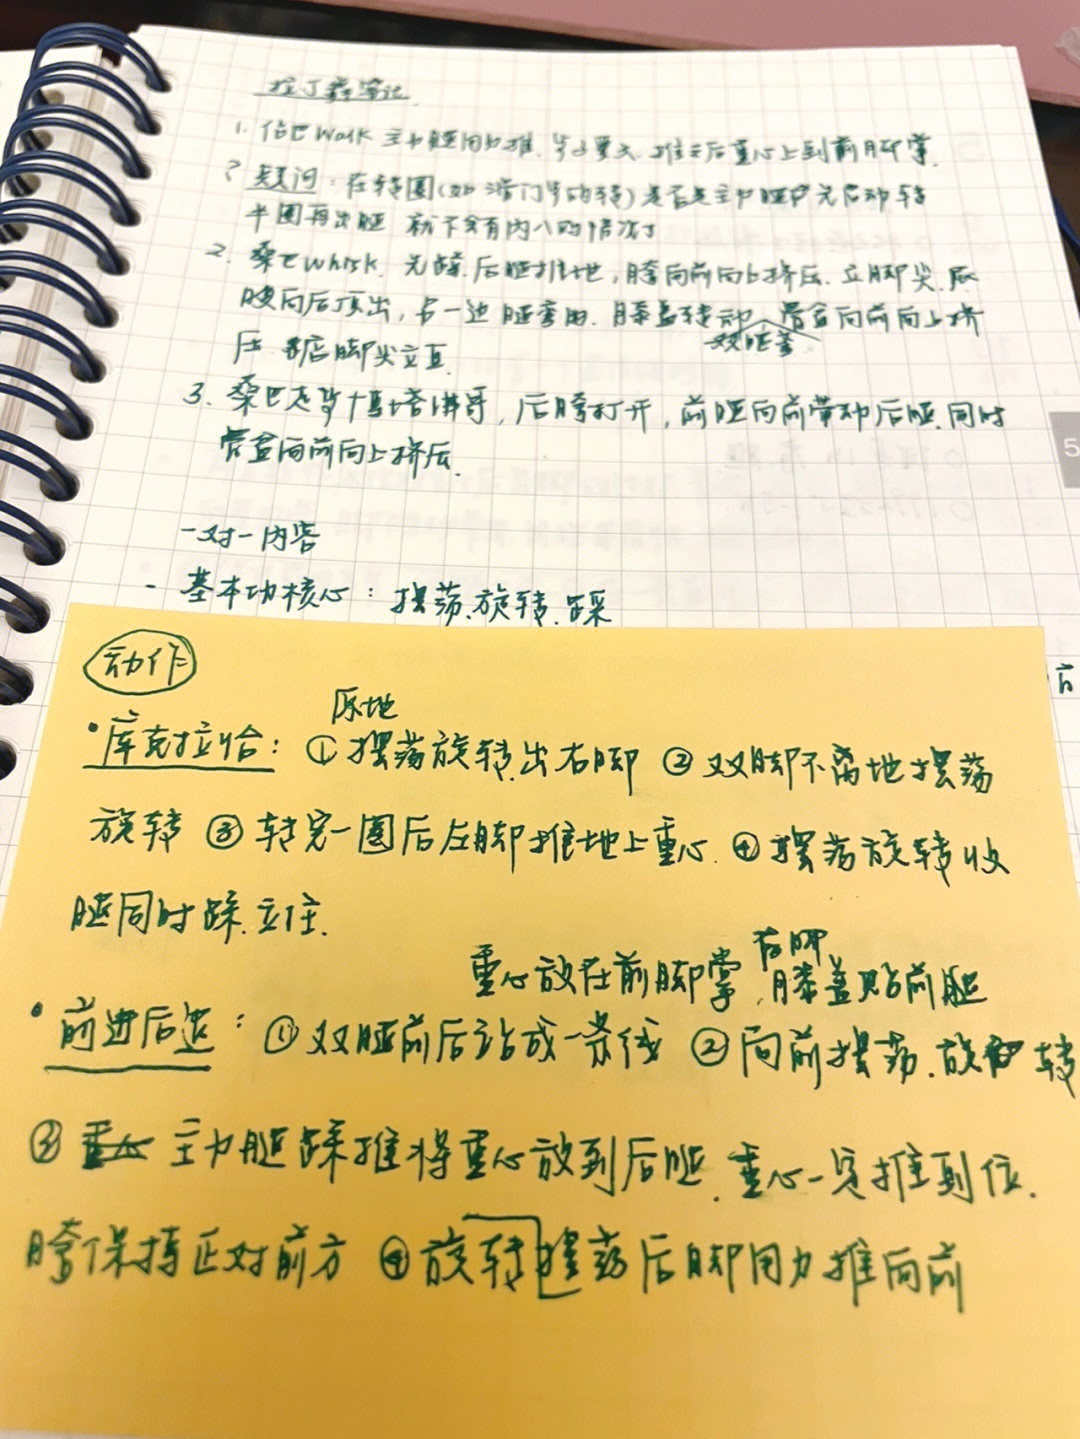 拉丁舞笔记
1. 伦巴Walk 主力腿用力推.步子要大.推完后重心上到前脚掌.
? 疑问:在转圈(如 步的转)是否是主力腿 先启动转
半圈再出腿 就不会有内八的情况了
2. 桑巴Whisk.先踩.后腿推地,胯向前向上挤压.立脚尖.
向后顶出,另一边腿弯曲.膝盖转动 骨盆向前向上挤
压 脚尖立直
3. 桑巴 ,后胯打开,前腿向前带动后腿.同时
骨盆向前向上挤压.
一对一内容
- 基本功核心:摆荡.旋转.踩
动作
原地
•库克拉恰:①摆荡旋转出右脚 ②双脚不离地摆荡
旋转 ③转完一圈后左脚推地上重心.④摆荡旋转收
腿同时踩.立住.
右脚
重心放在前脚掌,膝盖贴前腿
•前进后退:①双腿前后站成一条线 ②向前摆荡.旋转
③ 重心 主力腿踩推将重心放到后腿.重心一定推到位.
胯保持正对前方 ④旋转摆荡后脚用力推向前